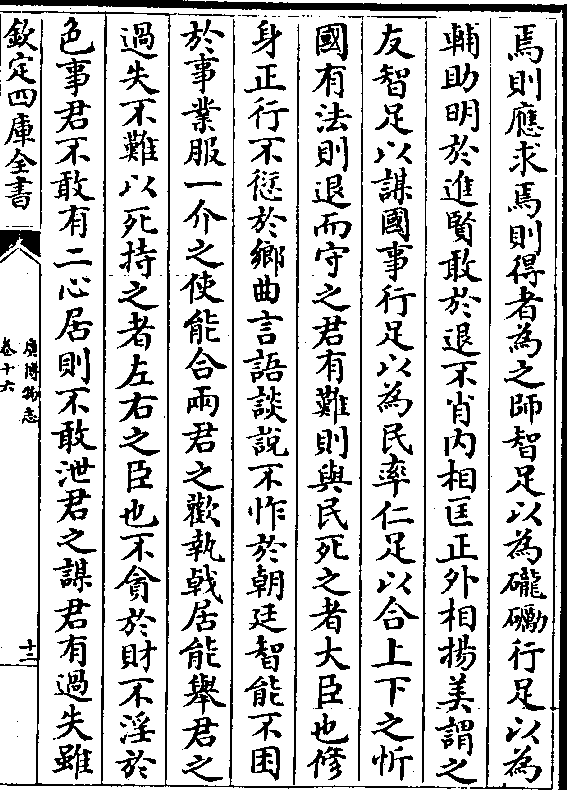 焉則應求焉則得者為之師智足以為礲礪行足以為
輔助明於進賢敢於退不肖内相匡正外相揚美謂之
友智足以謀國事行足以為民率仁足以合上下之忻
國有法則退而守之君有難則與民死之者大臣也修
身正行不愆於鄉曲言語談說不怍於朝廷智能不困
於事業服一介之使能合兩君之歡執戟居能舉君之
過失不難以死持之者左右之臣也不貪於財不淫於
色事君不敢有二心居則不敢泄君之謀君有過失雖
欽定四庫全書
廣博物志
卷十六
十二